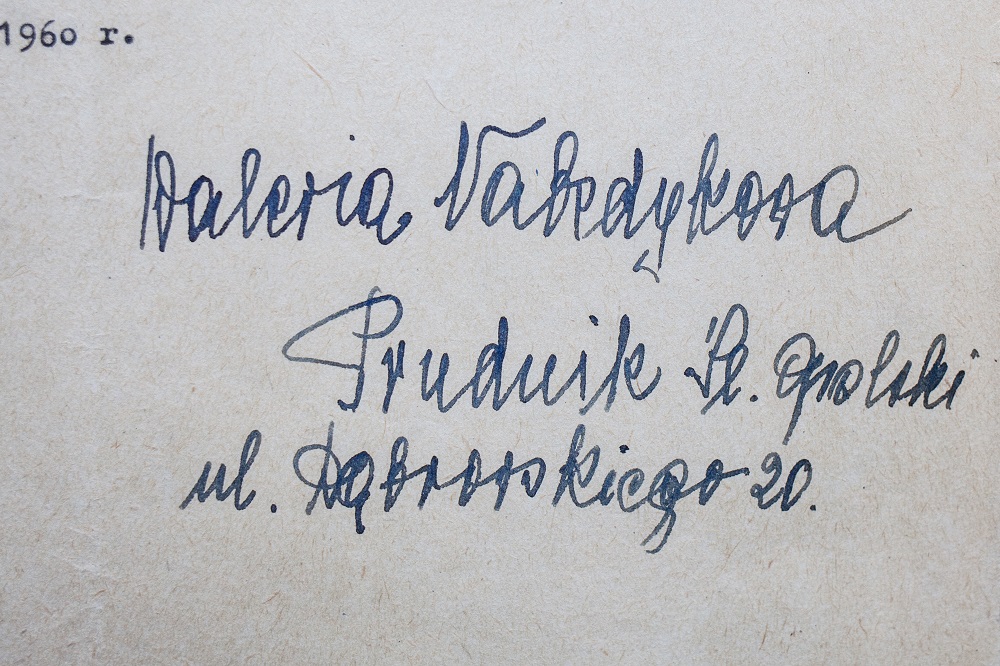 1960 r.
Waleria Nabzdykowa
Prudnik Śl. Opolski
ul. Dąbrowskiego 20.